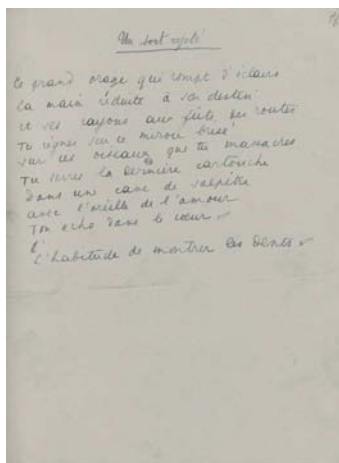 Un sort réglé
Ce grand orage qui rompt d'éclairs
La main réduite à son destin
et ses rayons aux des routes
Tu règnes sur ce miroir brisé
sur les oiseaux que tu massacres
Tu serres la dernière cartouche
dans une cave de salpêtre
avec l'oreille de l'amour
Ton echo dans le cœur
L'
L'habitude de montrer les dents